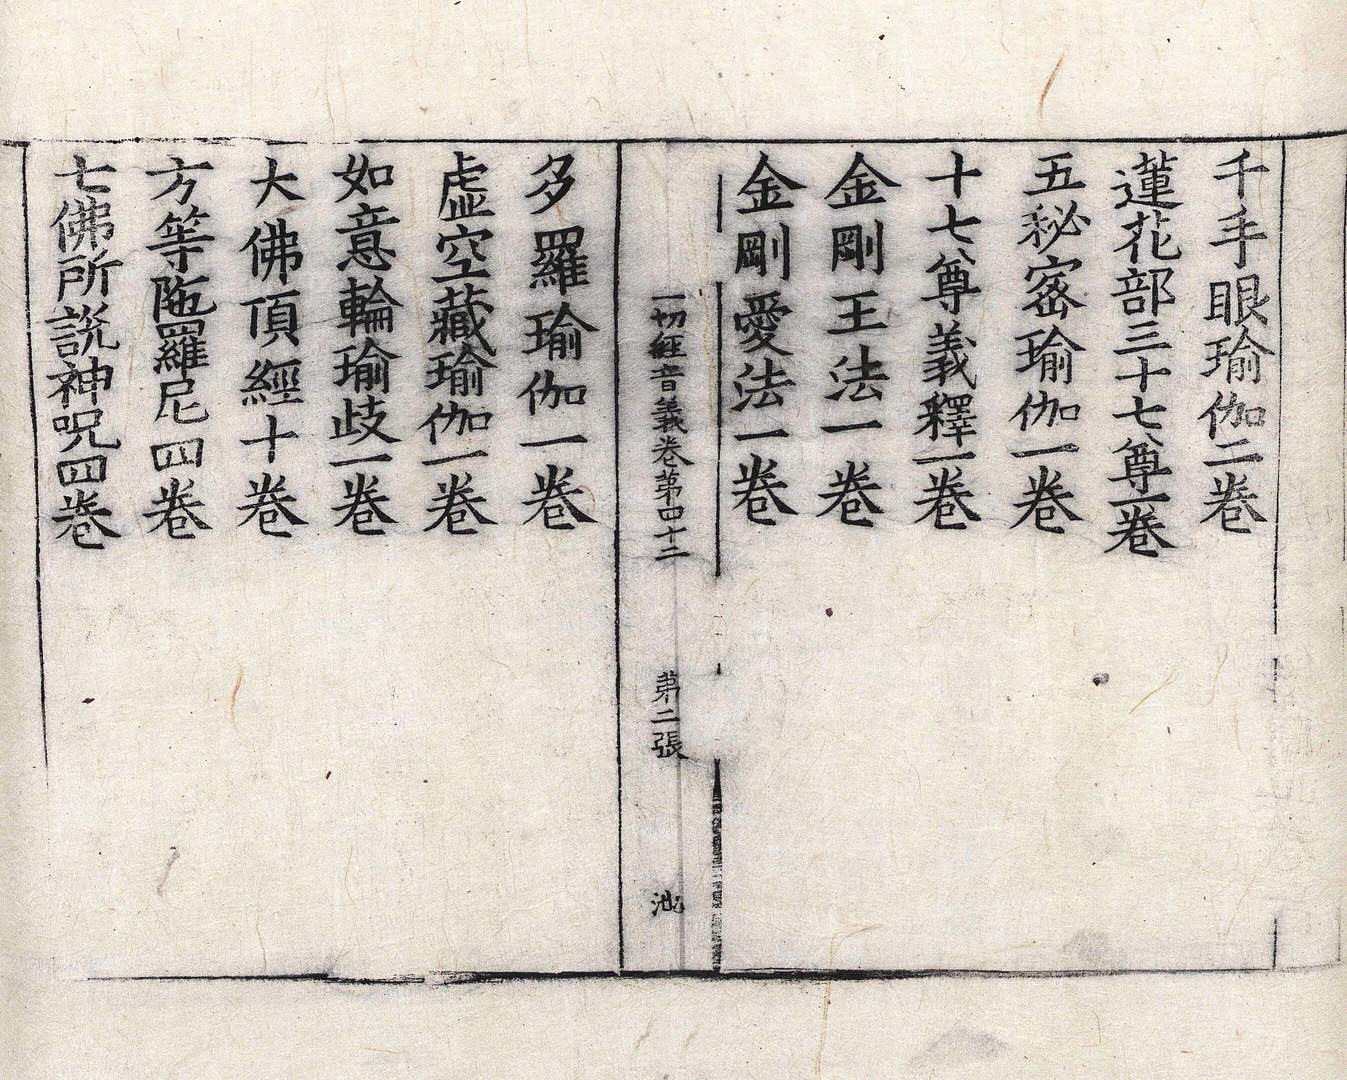 千手眼瑜伽二卷
蓮花部三十七尊一卷
五秘密瑜伽一卷
十七尊義釋一卷
金剛王法一卷
金剛愛法一卷
一切經音義卷第四十二 第二張 池
多羅瑜伽一卷
虛空藏瑜伽一卷
如意輪瑜歧一卷
大佛頂經十卷
方等陁羅尼四卷
七佛所說神呪四卷